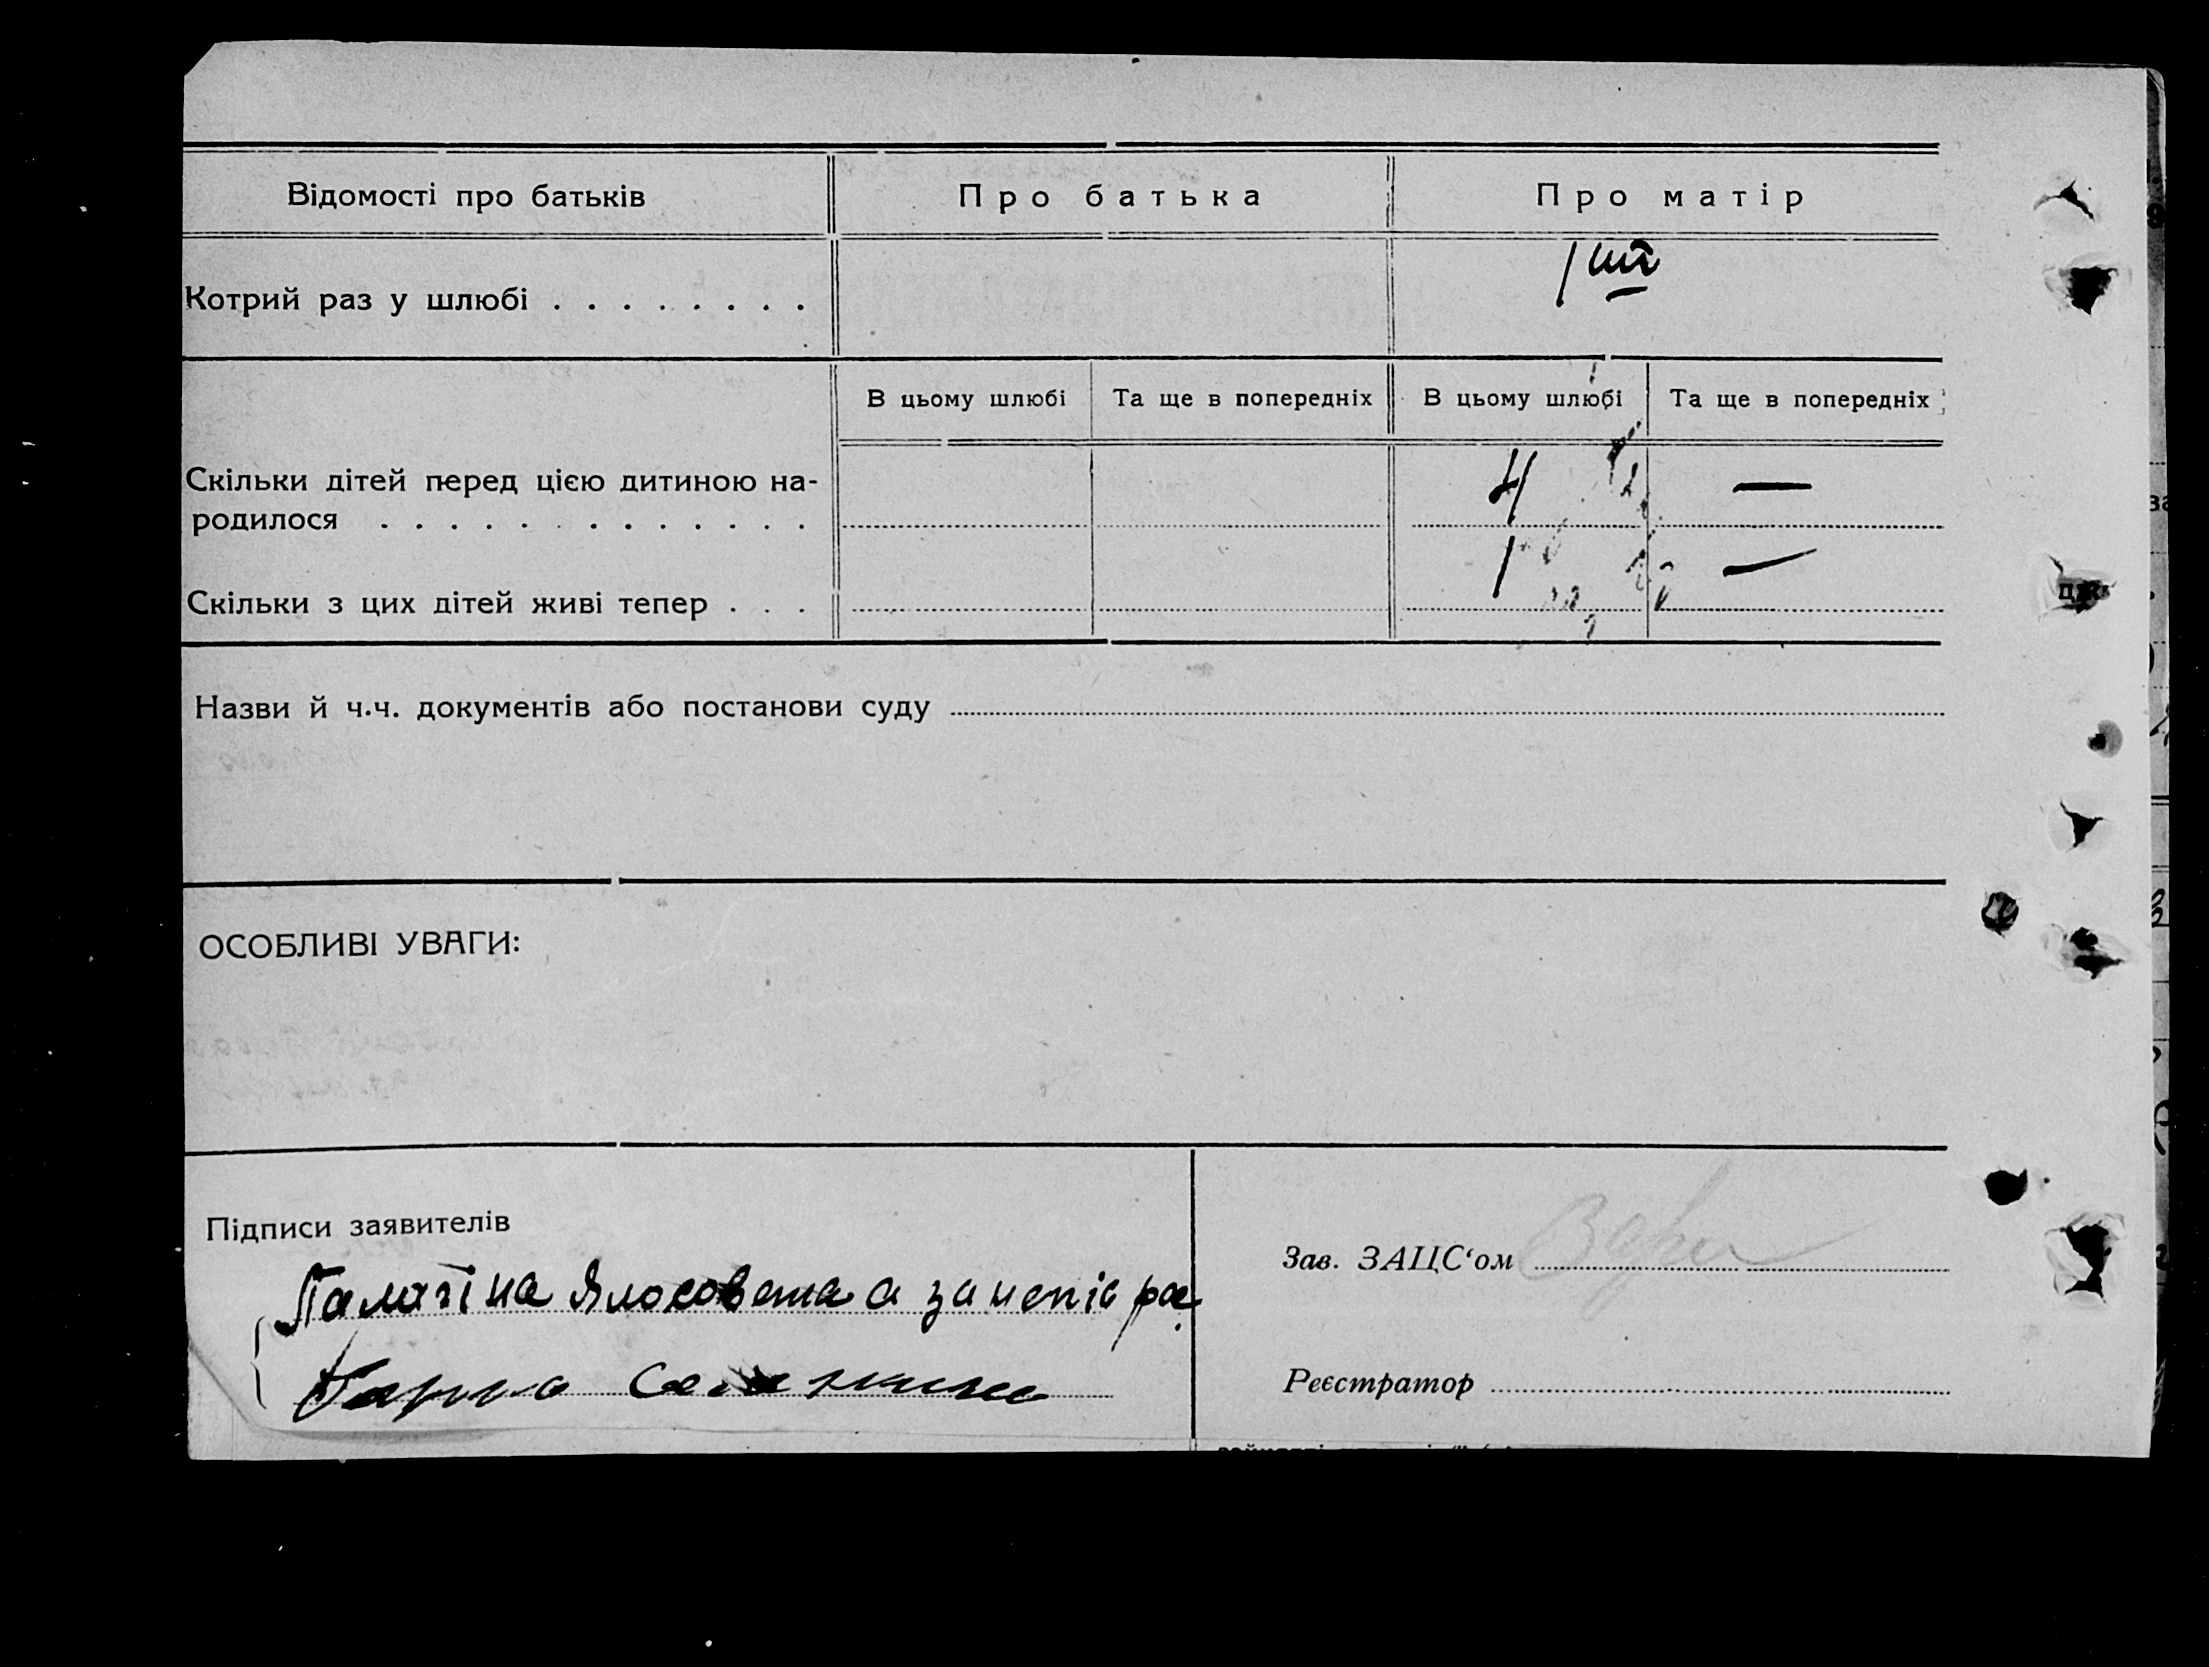 Відомості про батьків
Про батька
Про матір
Котрий раз у шлюбі . . . . . . . .
1ий
В цьому шлюбі
Та ще в попередніх
В цьому шлюбі
Та ще в попередніх
Скільки дітей перед цією дитиною на-
родилося . . . . . . . . . . . . .
4
—
Скільки з цих дітей живі тепер . . .
1
—
Назви й ч.ч. документів або постанови суду
ОСОБЛИВІ УВАГИ:
Підписи заявителів
Зав. ЗАЦС‘ом
а
Реєстратор